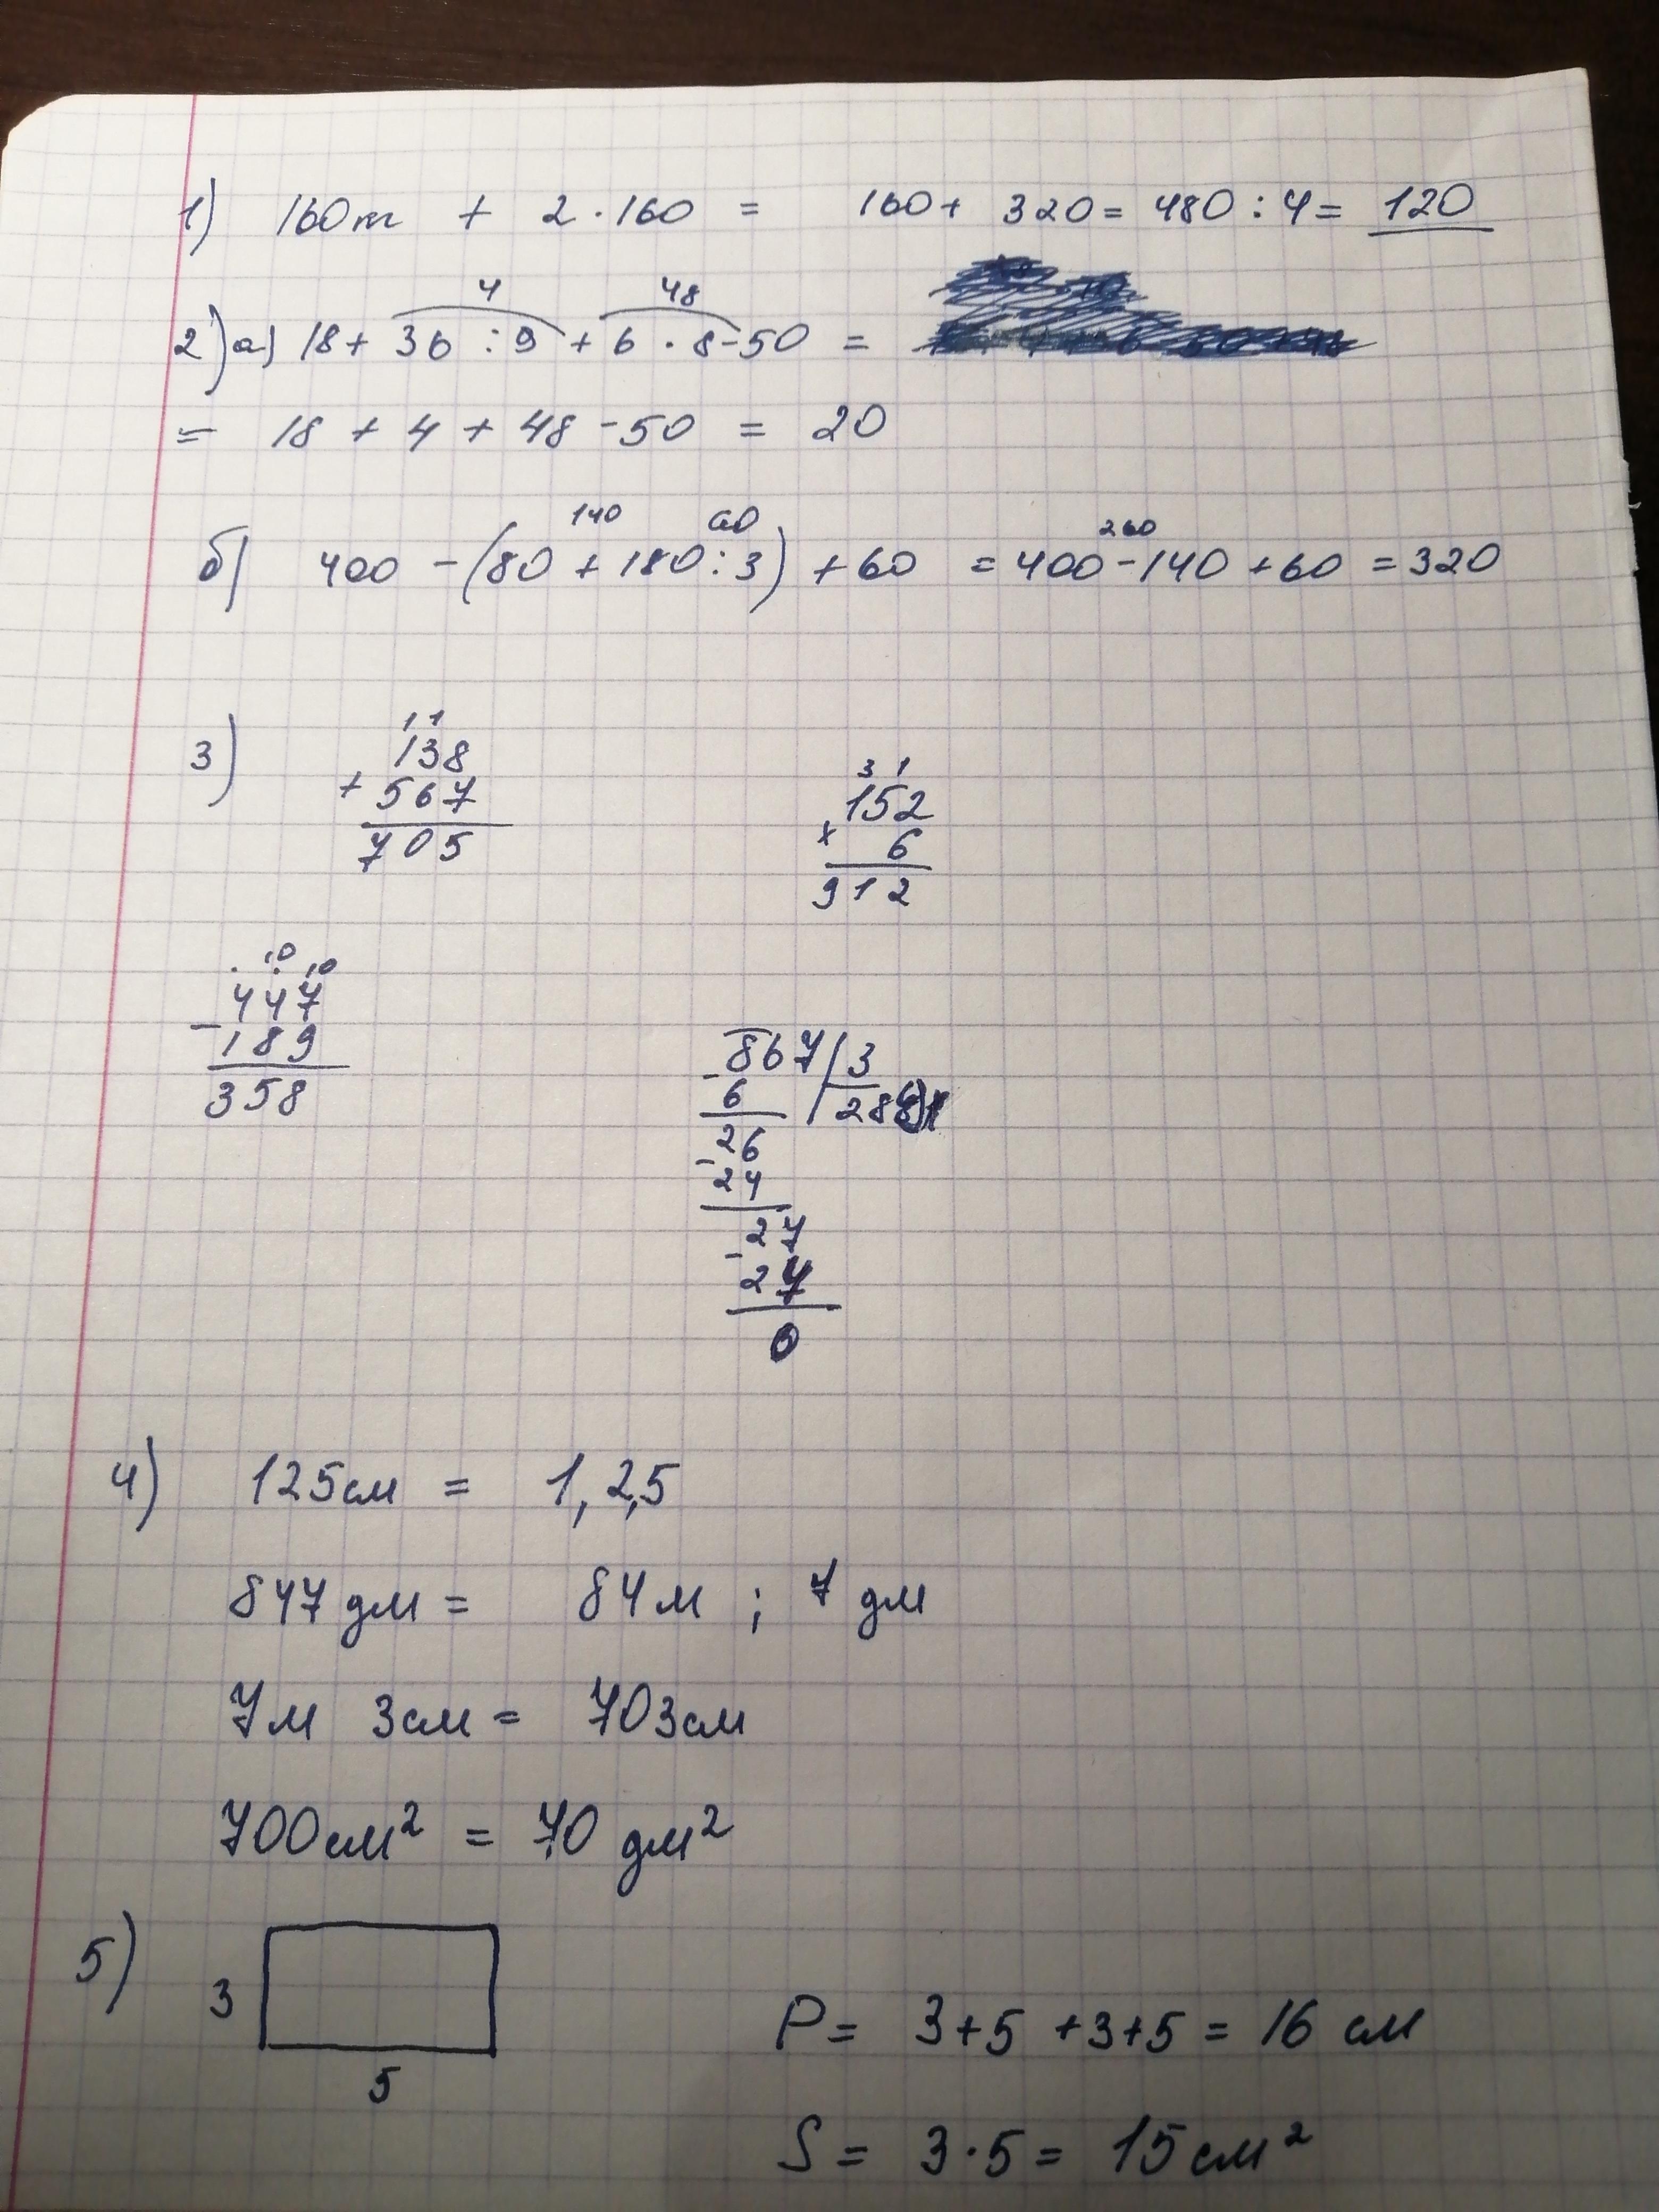 1) 160т + 2 · 160 = 160 + 320 = 480 : 4 = 120
4 48
2) а) 18 + 36 : 9 + 6 · 8 - 50 =
= 18 + 4 + 48 - 50 = 20
140 60 260
б) 400 - (80 + 180 : 3) + 60 = 400 - 140 + 60 = 320
3)
1 1
138
+ 567
705
3 1
152
x 6
912
10 10
447
- 189
358
867 3
- 6 28
26
- 24
27
- 27
0
4) 125см = 1,2,5
847 дм = 84м ; 7 дм
7м 3см = 703см
700см² = 70 дм²
5)
3
5
P = 3+5 +3+5 = 16 см
S = 3·5 = 15см²